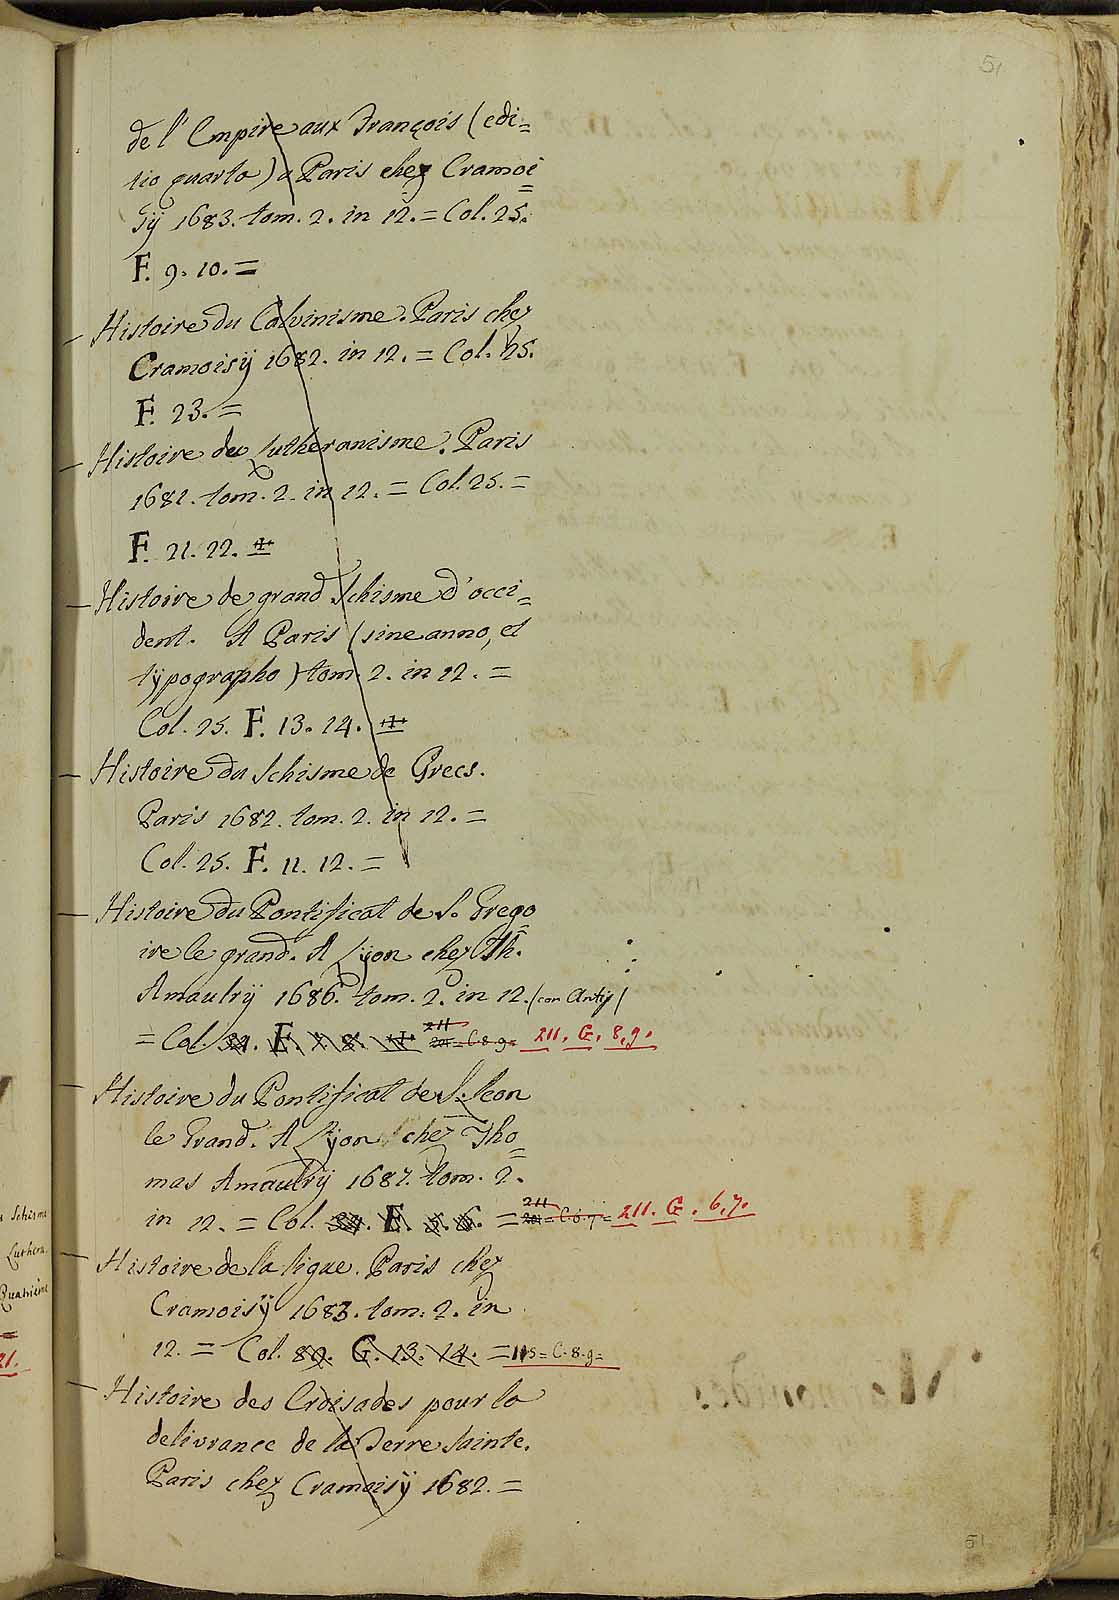 51
de l'Empire aux François (edi=
tio quarta) a Paris chez Cramoi=
sÿ 1683. tom. 2. in 12. = Col. 25.
F. 9. 10. =
— Histoire du Calvinisme. Paris chez
Cramoisÿ 1682. in 12. = Col. 25.
F. 23. =
— Histoire du Lutheranisme. Paris
1682. tom. 2. in 12. = Col. 25. =
F. 21. 22.
— Histoire de grand Schisme d'occi=
dent. A Paris (sine anno, et
typographo) tom. 2. in 12. =
Col. 25. F. 13. 14.
— Histoire du Schisme de Grecs.
Paris 1682. tom. 2. in 12. =
Col. 25. F. 11. 12. =
— Histoire du Pontificat de S. Grego=
ire le grand. A Lÿon chez Th.
Amaulrÿ 1686. tom. 2. in 12. (con Antip)
= Col. 34. F. 7. 8. 211 201 = C. 8. 9 = 211. G. 8, 9.
— Histoire du Pontificat de S. Leon
le Grand. A Lÿon chez Tho=
mas Amaulrÿ 1687. tom. 2.
in 12. = Col. 34. F. 5. 6. = 211 201 = C. 6. 7 = 211. G. 6, 7.
— Histoire de la ligue. Paris chez
Cramoisÿ 1683. tom. 2. in
12. = Col. 89. G. 13. 14. = 115 = C. 8. 9 =
— Histoire des Croisades pour la
delivrance de la Terre Sainte.
Paris chez Cramoisÿ 1682. =
51
Schisme
Luthera.
Quatrième
21.